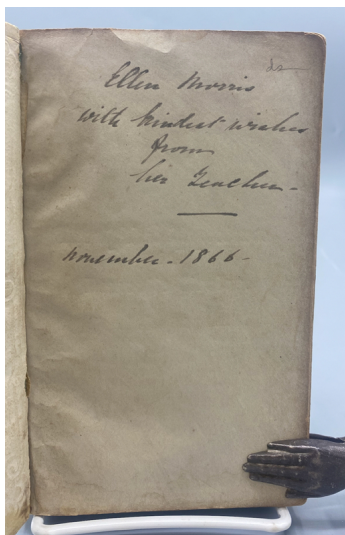 Ellen Morris
with kindest wishes
from
her Teacher -
November - 1866 -